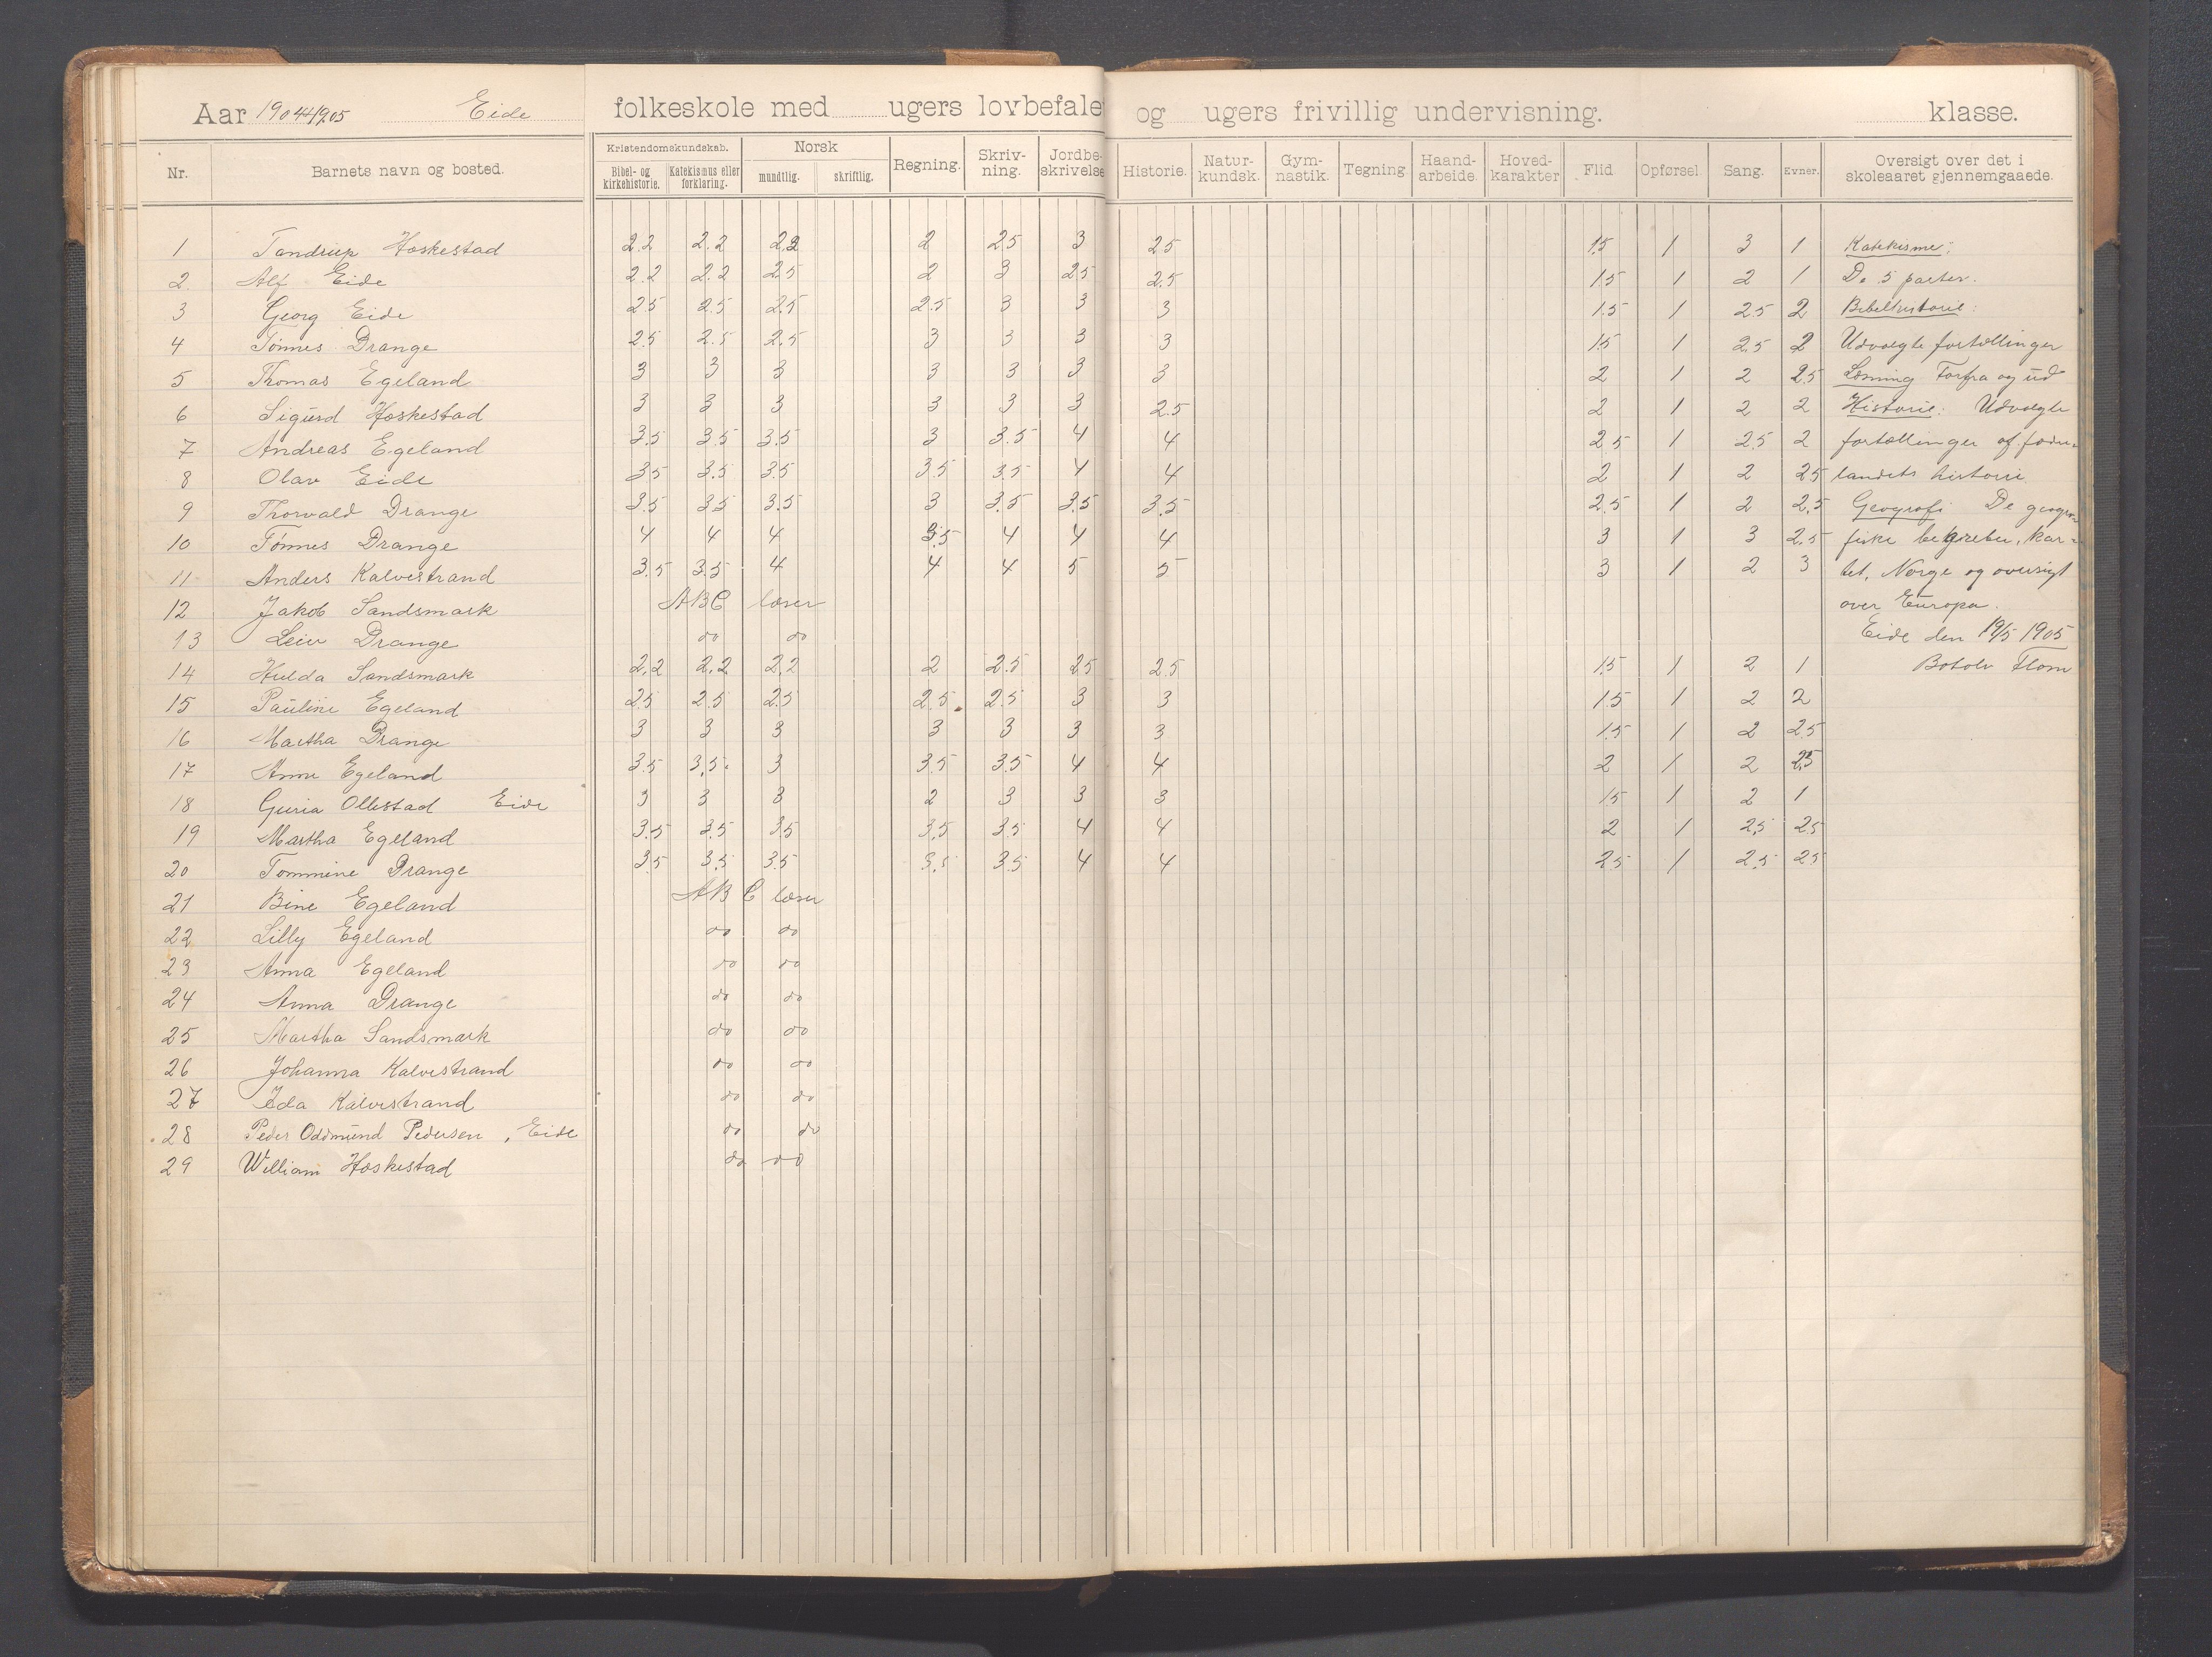 Aar 1904-1905 Eide folkeskole med ugers lovbefale og ugers frivillig undervisning. klasse.
Nr. Barnets navn og bosted. Kristendomskundskab. Bibel- og kirkehistorie. Katekismus eller forklaring. Norsk mundtlig. skriftlig. Regning. Skriv-ning. Jordbe-skrivelse Historie. Natur-kundsk. Gym-nastik. Tegning Haand-arbeide. Hoved-karakter Flid Opførsel Sang. Evner. Oversigt over det i skoleaaret gjennemgaaede.
1 Tandrup Hoskestad 2.2 2.2 2.2 2 2.5 3 2.5 1.5 1 3 1 Katekisme:
2 Alf Eide 2.2 2.2 2.5 2 3 2.5 2.5 1.5 1 2 1 De 5 parter.
3 Georg Eide 2.5 2.5 2.5 2.5 3 3 3 1.5 1 2.5 2 Bibelhistorie:
4 Tønnes Drange 2.5 2.5 2.5 3 3 3 3 1.5 1 2.5 2 Udvalgte fortællinger
5 Thomas Egeland 3 3 3 3 3 3 3 2 1 2 2.5 Læsning Forfra og ud
6 Sigurd Hoskestad 3 3 3 3 3 3 2.5 2 1 2 2 Historie: Udvalgte
7 Andreas Egeland 3.5 3.5 3.5 3 3.5 4 4 2.5 1 2.5 2 fortællinger af fædre-
8 Olav Eide 3.5 3.5 3.5 3.5 3.5 4 4 2 1 2 2.5 landets historie.
9 Thorvald Drange 3.5 3.5 3.5 3 3.5 3.5 3.5 2.5 1 2 2.5 Geografi De geogra-
10 Tønnes Drange 4 4 4 3.5 4 4 4 3 1 3 2.5 fiske begreber, kar-
11 Anders Kalvestrand 3.5 3.5 4 4 4 5 5 3 1 2 3 tet, Norge og oversigt
12 Jakob Sandsmark ABC læser over Europa.
13 Leiv Drange do do Eide den 19/5 1905
14 Hulda Sandsmark 2.2 2.2 2.2 2 2.5 2.5 2.5 1.5 1 2 1 Botolv Flom
15 Pauline Egeland 2.5 2.5 2.5 2.5 2.5 3 3 1.5 1 2 2
16 Martha Drange 3 3 3 3 3 3 3 1.5 1 2 2.5
17 Anne Egeland 3.5 3.5 3 3.5 3.5 4 4 2 1 2 2.5
18 Guria Ollestad Eide 3 3 3 2 3 3 3 1.5 1 2 1
19 Martha Egeland 3.5 3.5 3.5 3.5 3.5 4 4 2 1 2.5 2.5
20 Tommine Drange 3.5 3.5 3.5 3.5 3.5 4 4 2.5 1 2.5 2.5
21 Bine Egeland ABC læser
22 Lilly Egeland do do
23 Anna Egeland do do
24 Anna Drange do do
25 Martha Sandsmark do do
26 Johanna Kalvestrand do do
27 Ida Kalvestrand do do
28 Peder Oddmund Pedersen, Eide do do
29 William Hoskestad do do